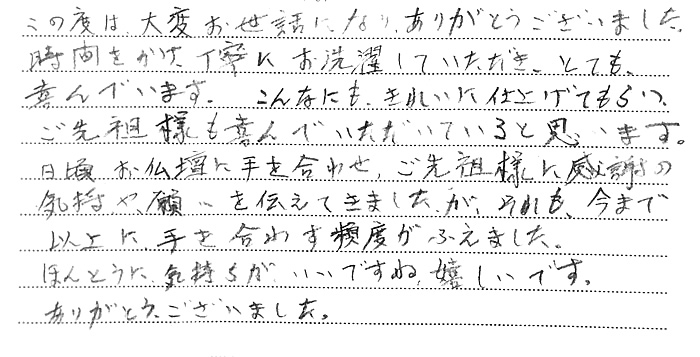 この度は、大変お世話になり、ありがとうございました。
時間をかけ、丁寧に お洗濯していただき、とても、
喜んでいます。 こんなにも、きれいに仕上げてもらい、
ご先祖様も喜んでいただいていると思います。
日頃 お仏壇に手を合わせ、ご先祖様に感謝の
気持や、願いを伝えてきましたが、それも、今まで
以上に、手を合わす頻度がふえました。
ほんとうに、気持ちが、いいですね。嬉しいです。
ありがとうございました。